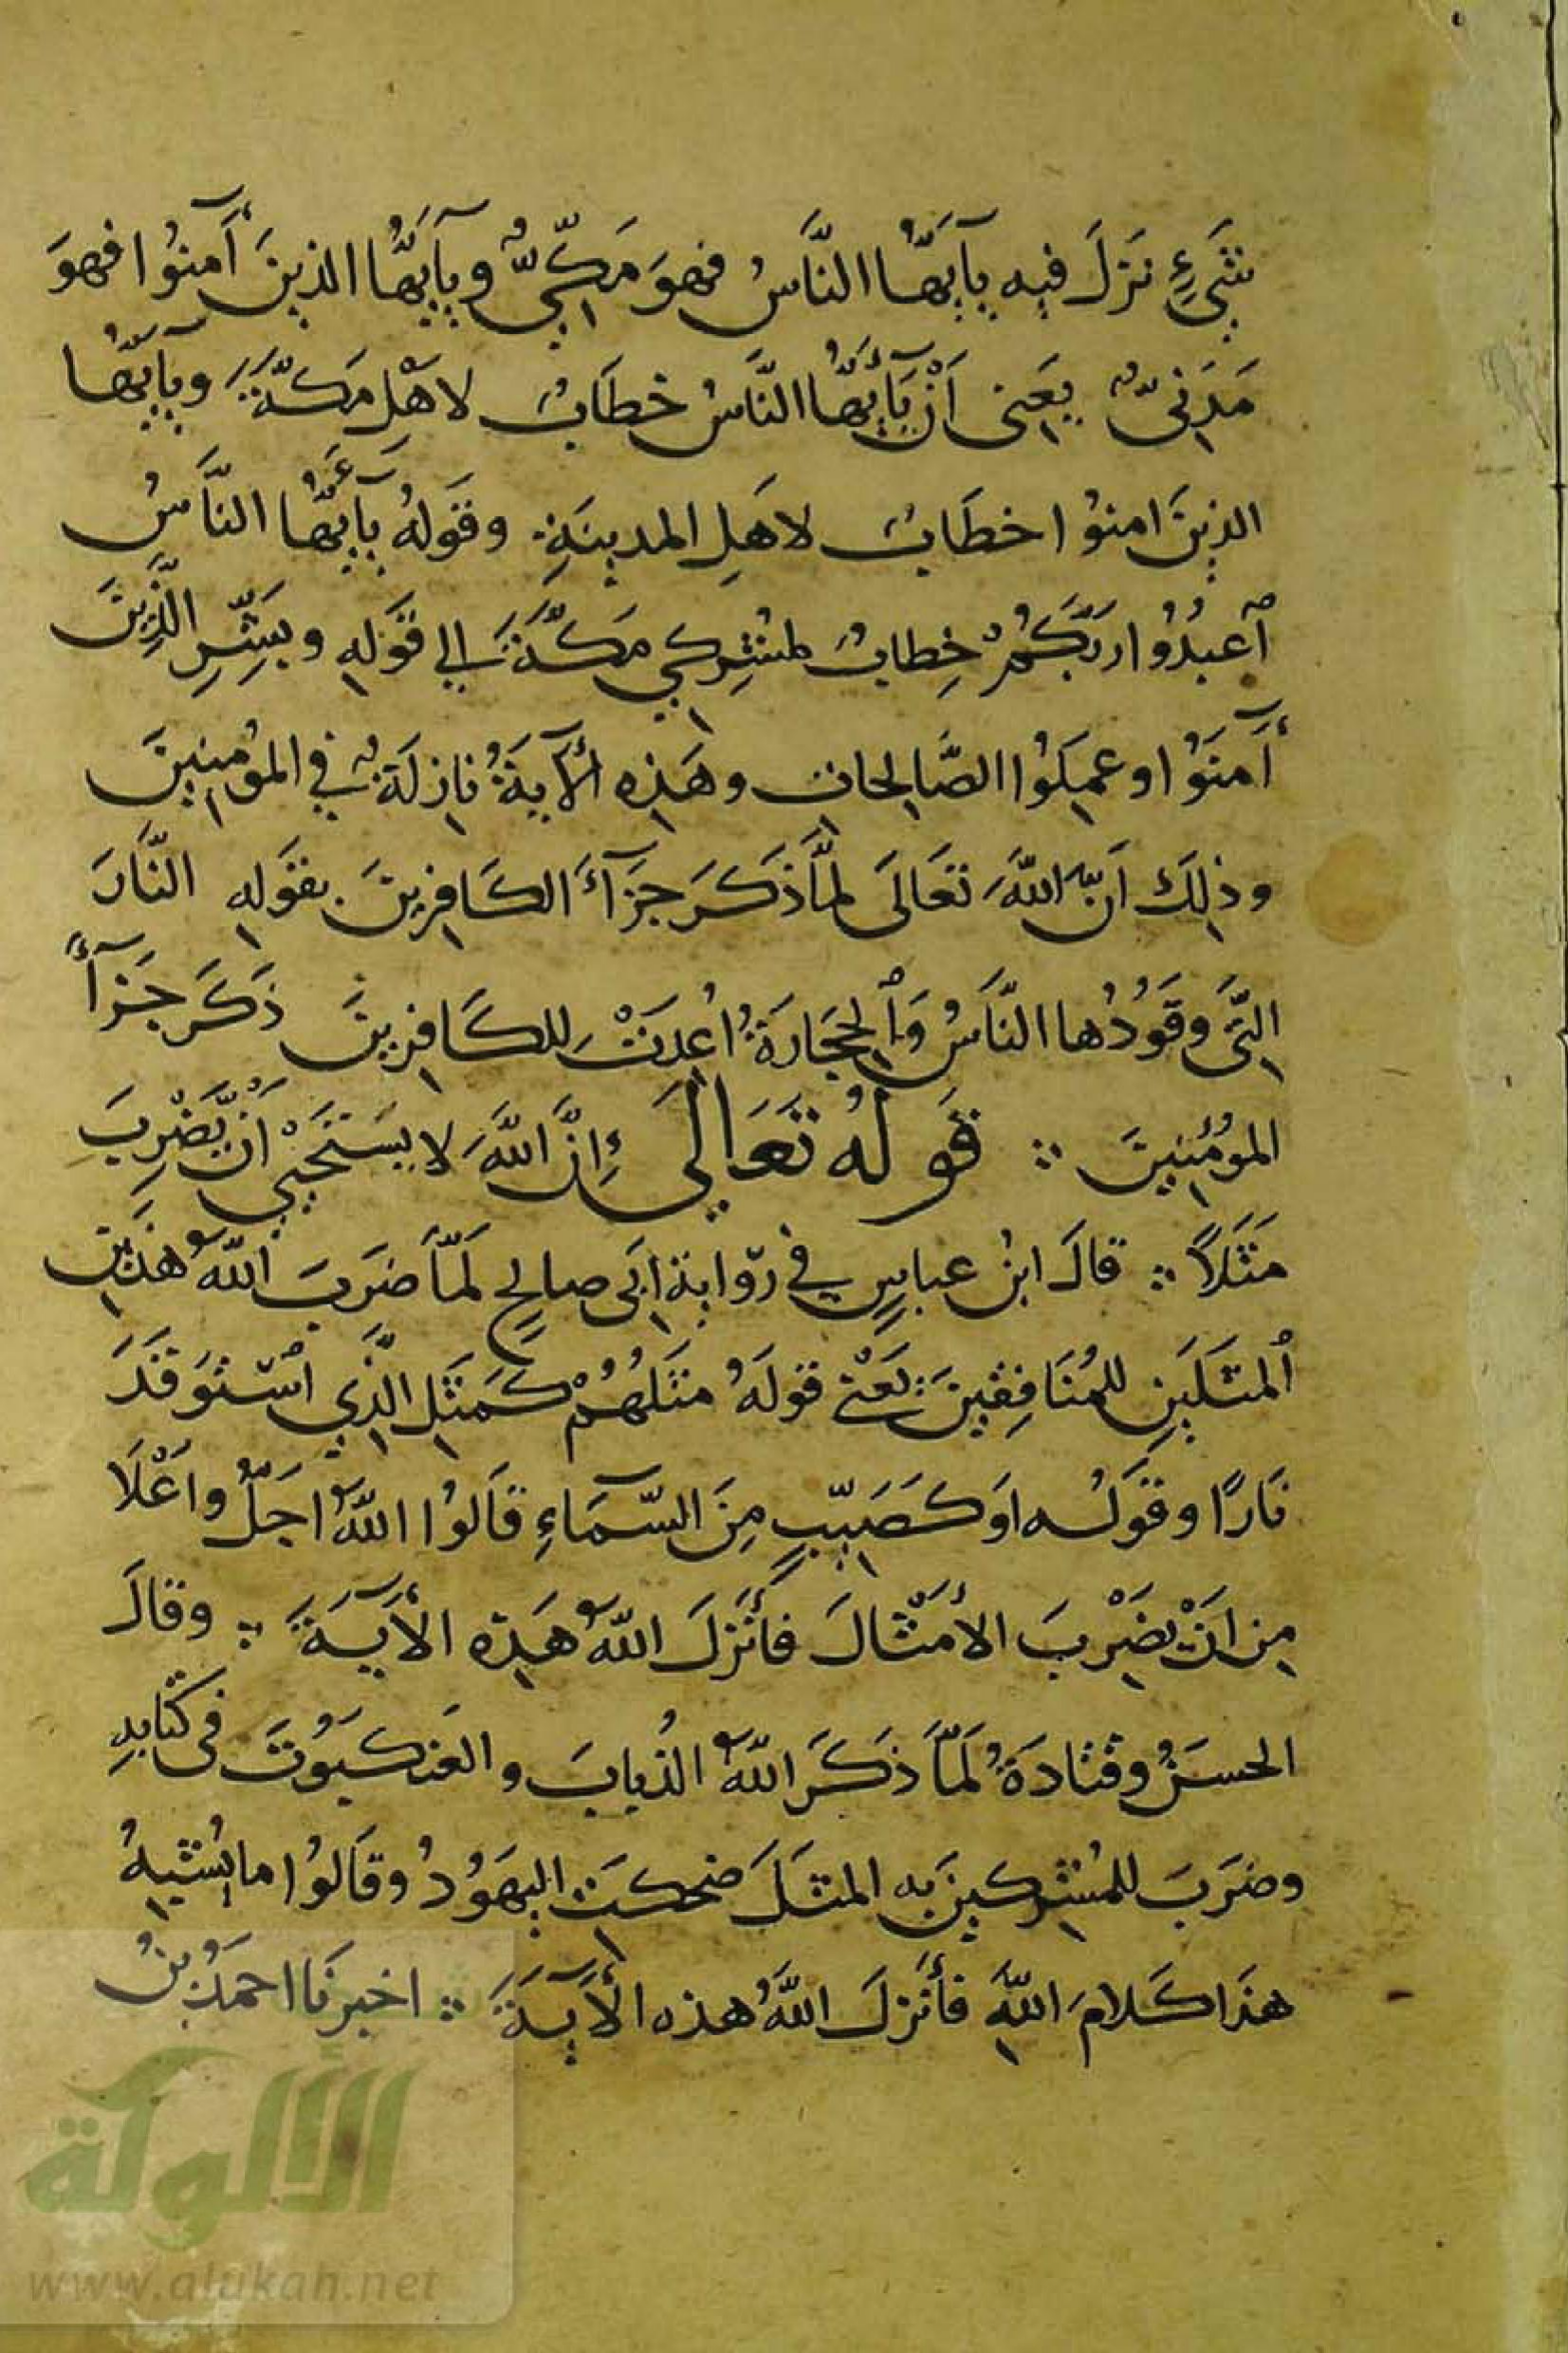 شَيْءٍ نَزَلَ فيه يآيَهَا النَّاسُ فهوَ مَكِّيٌّ ويآيَهُّا الذينَ آمنُوا فهوَ
مَدَنِيٌّ يعَنى اَنْ يَآيُّهَا النَّاسُ خطَابٌ لاهْلِ مَكَّةَ ويآيَّهُا
الذينَ امنوُا خطَابٌ لاهَلِ المدينَةِ وقَولهُ يآَيُّهَا النَّاسُ
آعبدُوُا رَبَّكُمُ خِطابٌ لمشرِكي مَكَّةَ الي قَولِه وبَشِّرِ الَّذِينَ
آمنَوُا وعمِلَوُا الصَّالِحاتِ وهَذِه الآيَةُ نازِلَةٌ في المؤمنِينَ
وذلِكَ اَنَّ اللَّهَ تعَالَى لمَّا ذَكَرَ جَزَآءَ الكَافِرِينَ بقَولِه النَّارَ
التَّي وقَوُدُها النَّاَسُ وَالحِجَارَةُ اُعِدَتْ للكَافِرِينَ ذَكَرَ جَزآءً
المؤُمِنِينَ قَولهُ تَعَالىَ إِنَّ اللَّهَ لا يسَتَحْيِي اَنْ يَّضْرِبَ
مَثَلاً قالَ ابنُ عباسٍ في رِوّايةِ اَبى صالِحٍ لَمّاَ ضَرَبَ اللَّهُ هذَيَنِ
المثَلَينِ للمُنَافِقِينَ يَعَنْي قولَهُ مثَلهُمُ كَمَثَلِ الَّذِي اسْتوَقَدَ
نَارًا وقَولُه اوَ كَصَيِّبٍ مِنَ السّمَآءِ قاَلوُا اللَّهُ اجَلُّ واَعْلَا
مِن اَنْ يضَرْبَ الأمْثَالَ فأَنَزلَ اللَّهُ هَذِه الأَيَةَ وقالَ
الحسَنُ وقتادَةُ لَمّاَ ذكَرَ اللَّهُ الذُبابَ والعَنكبَوُتَ في كتَابهِ
وضرَبَ للمُشرِكينَ بَه المثَلَ ضحكَتِ اليهَوُدُ وقاَلوُا ما يُشبِهُ
هذَا كَلامَ اللَّهِ فأنَزلَ اللَّهُ هذه الأَيةَ اخبرنَا احمَدُ بنُ
الألوكة
www.alukah.net